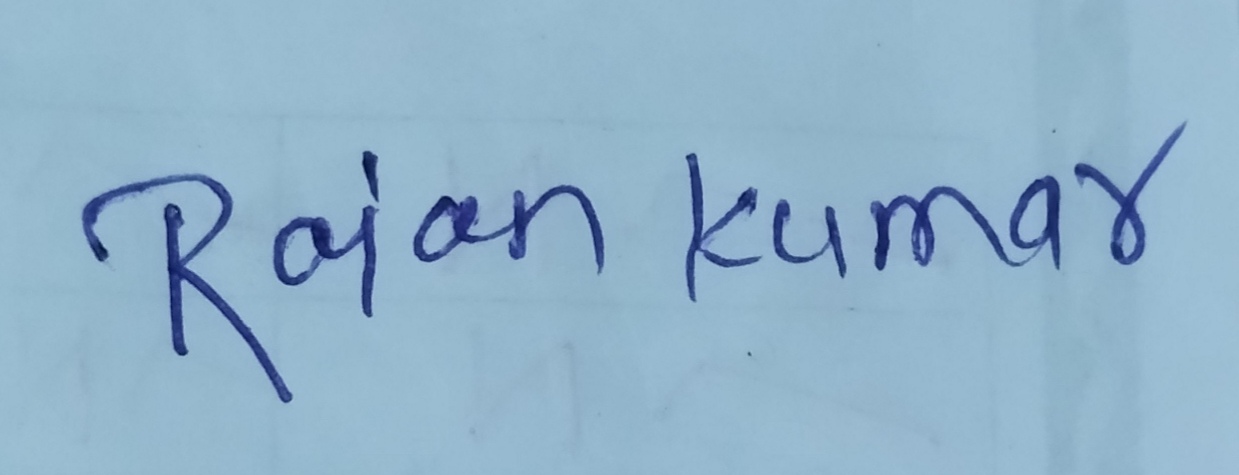 Rajan kumar